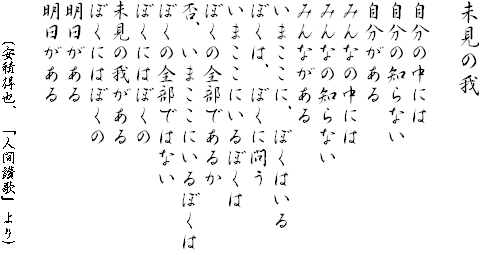 未見の我
自分の中には
自分の知らない
自分がある
みんなの中には
みんなの知らない
みんながある
いまここに、ぼくはいる
ぼくは、ぼくに問う
いまここにいるぼくは
ぼくの全部であるか
否、いまここにいるぼくは
ぼくの全部ではない
ぼくにはぼくの
未見の我がある
ぼくにはぼくの
明日がある
明日がある
（安積得也、「人間讃歌」より）